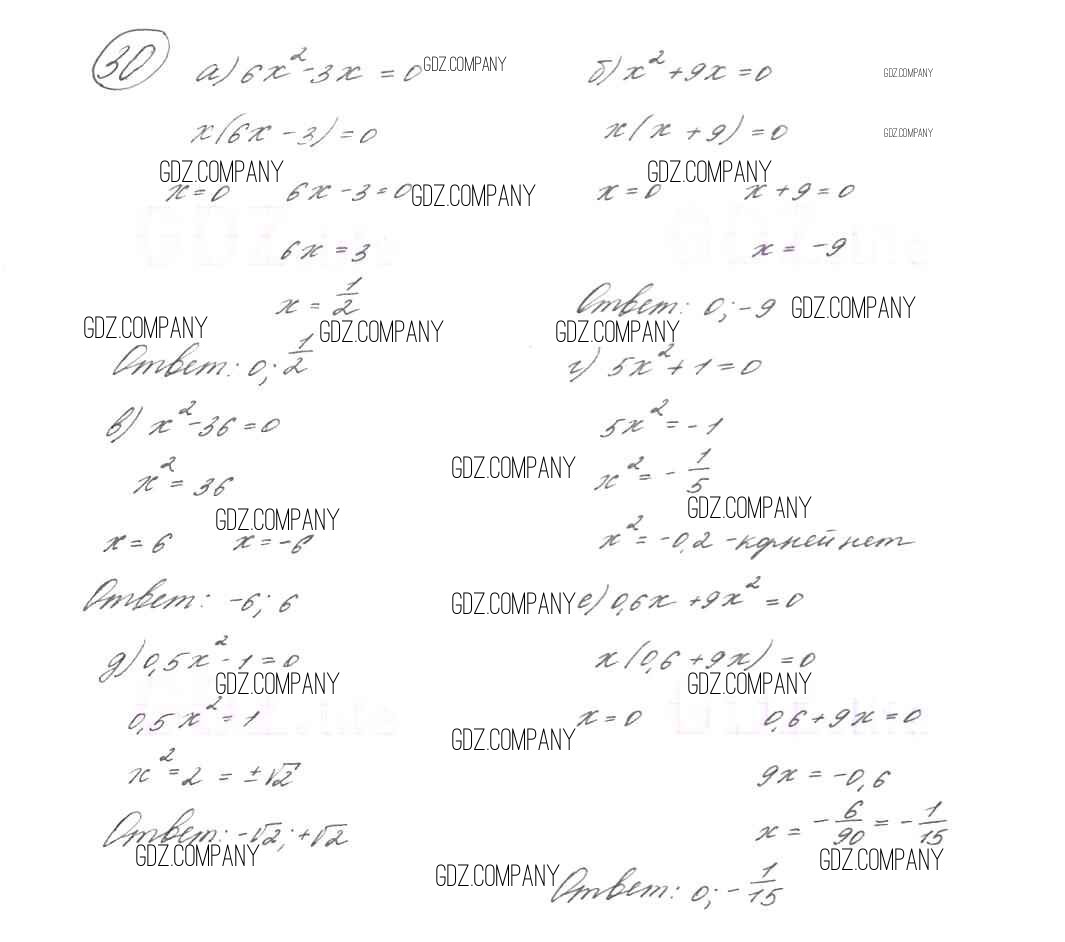 30 а) 6x² - 3x = 0 GDZ.COMPANY
x(6x - 3) = 0
GDZ.COMPANY
x = 0 6x - 3 = 0 GDZ.COMPANY
6x = 3
x = 1/2
GDZ.COMPANY GDZ.COMPANY
Ответ: 0; 1/2
б) x² + 9x = 0 GDZ.COMPANY
x(x + 9) = 0 GDZ.COMPANY
GDZ.COMPANY
x = 0 x + 9 = 0
x = -9
Ответ: 0; -9 GDZ.COMPANY
GDZ.COMPANY
в) x² - 36 = 0
x² = 36
GDZ.COMPANY
x = 6 x = -6
Ответ: -6; 6
г) 5x² + 1 = 0
5x² = -1
GDZ.COMPANY x² = - 1/5
GDZ.COMPANY
x² = -0,2 - корней нет
д) 0,5x² - 1 = 0
GDZ.COMPANY
0,5x² = 1
x² = 2 = ±√2
Ответ: -√2; +√2
GDZ.COMPANY
GDZ.COMPANY е) 0,6x + 9x² = 0
x(0,6 + 9x) = 0
GDZ.COMPANY
x = 0 0,6 + 9x = 0
GDZ.COMPANY
9x = -0,6
x = - 6/90 = - 1/15
GDZ.COMPANY
GDZ.COMPANY Ответ: 0; - 1/15